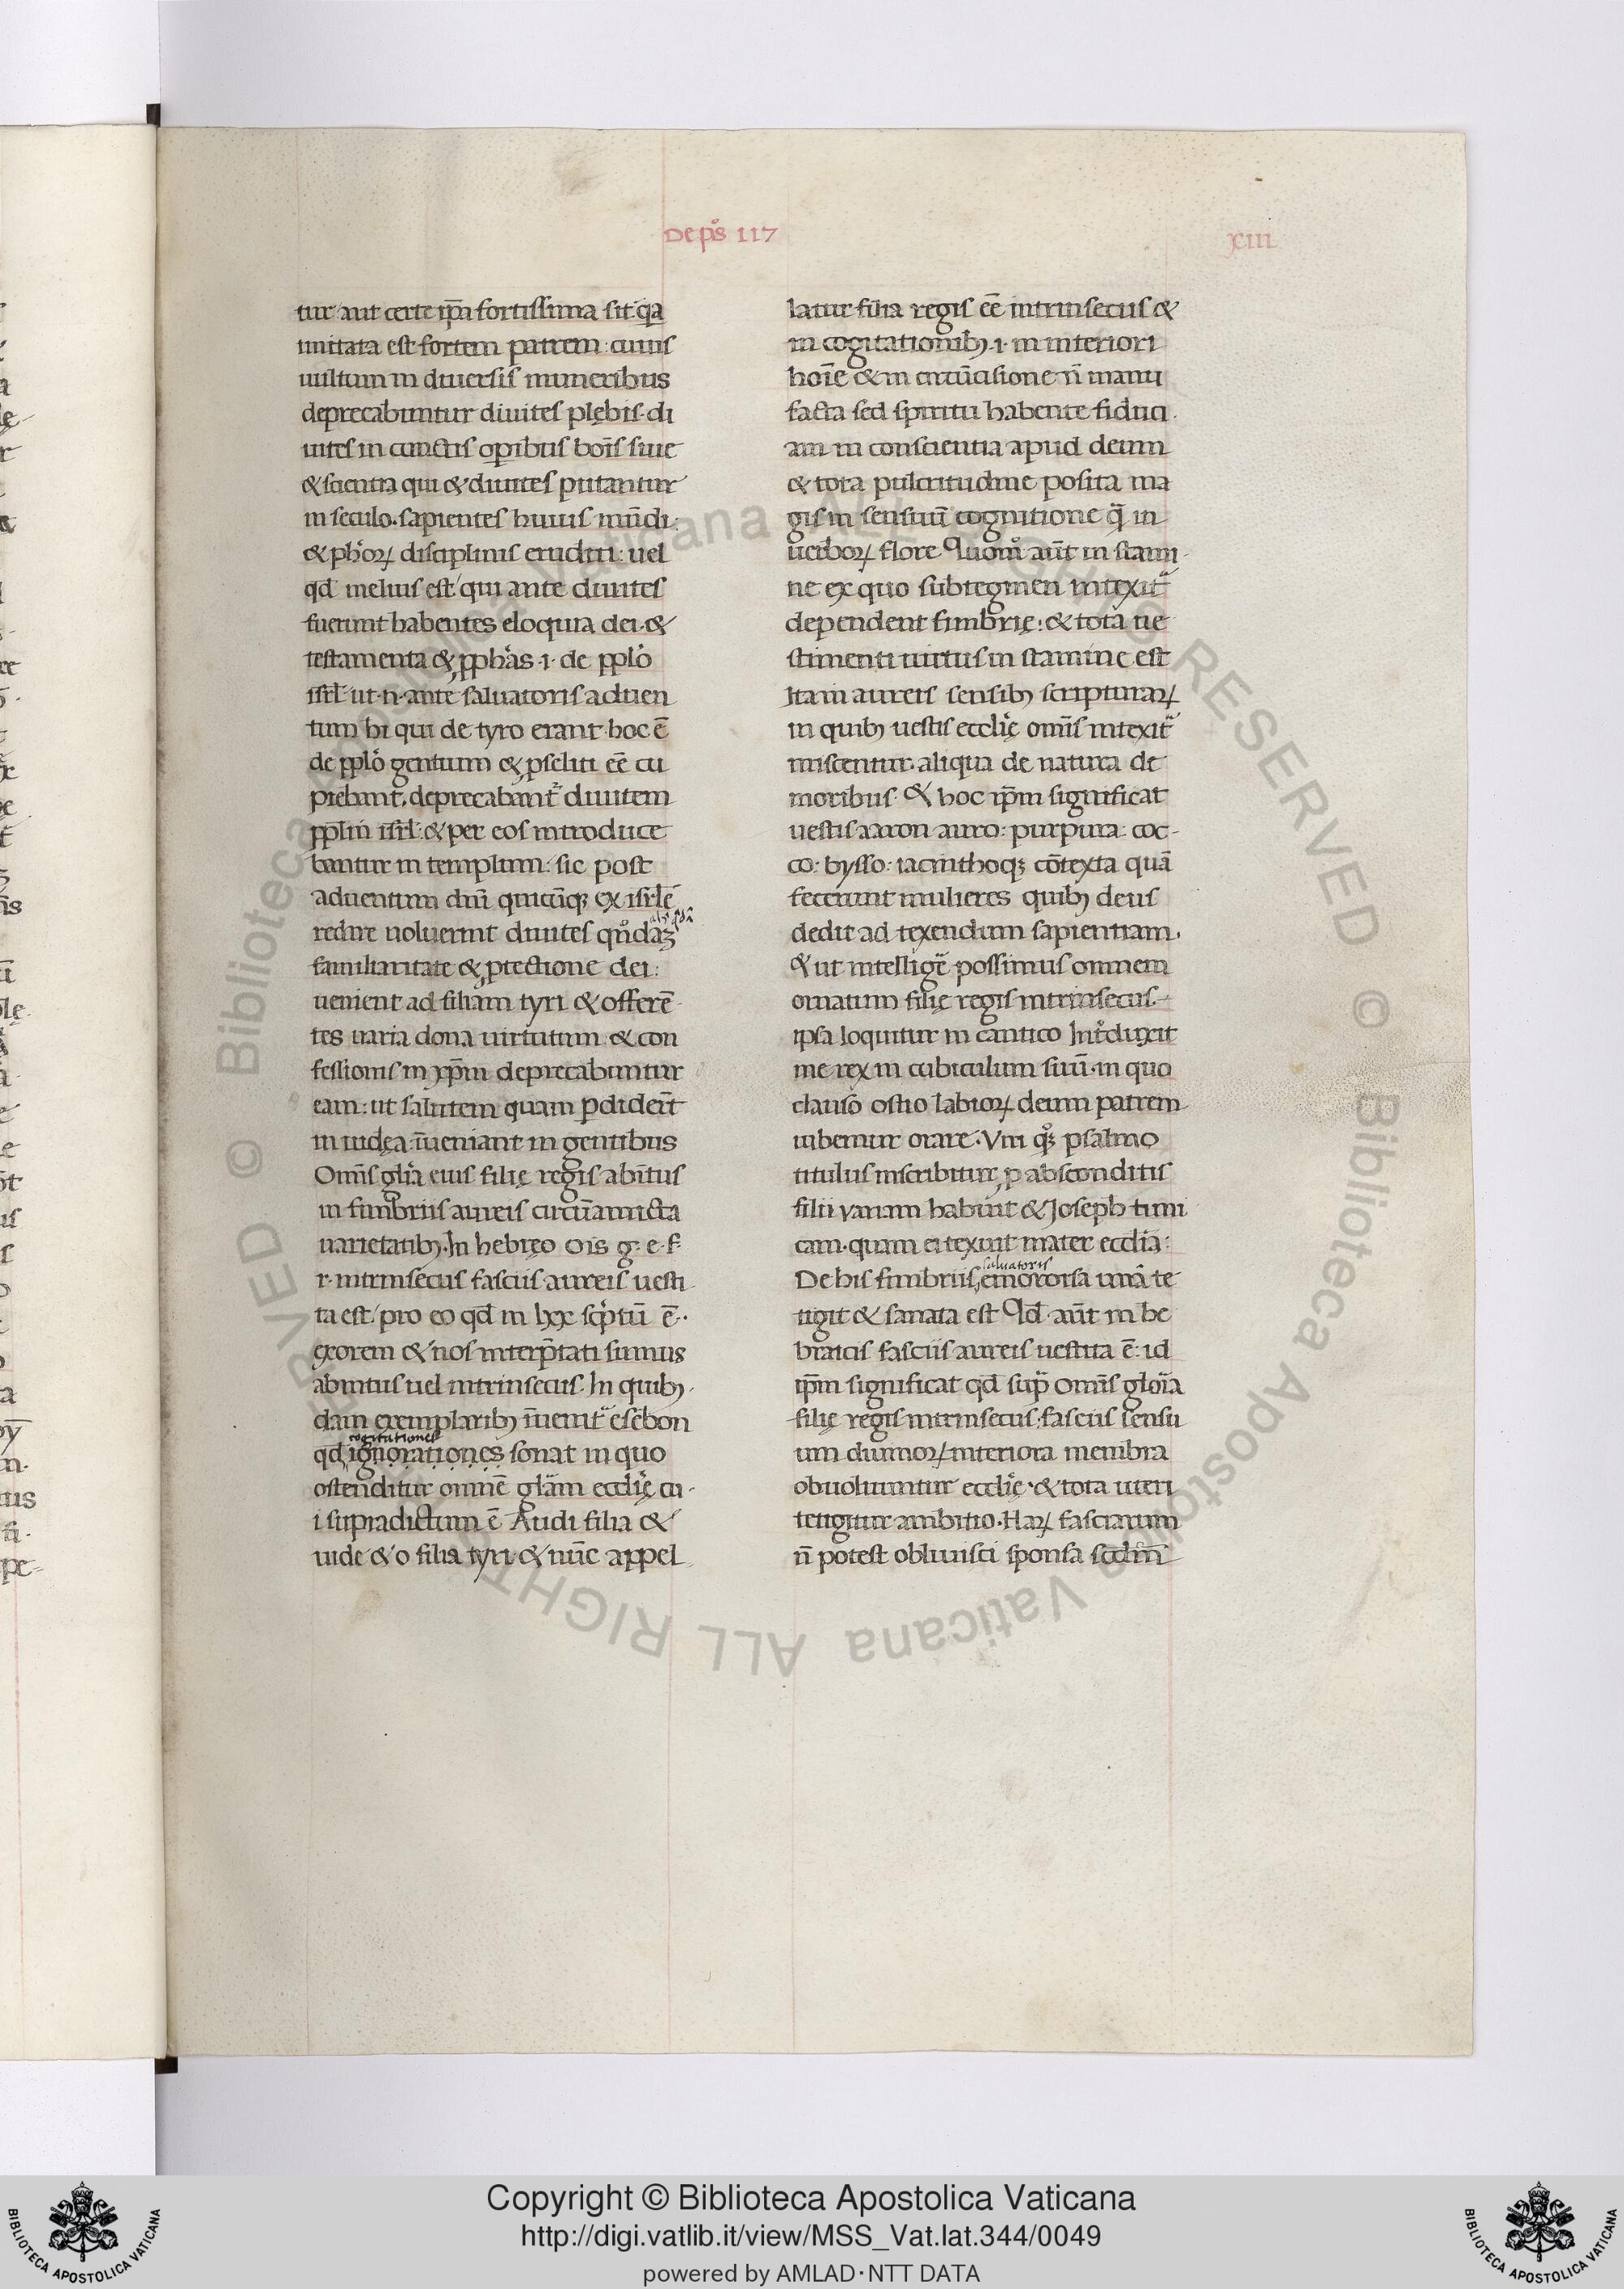 De ps̄ 117
XIII
tur aut certe ip̄a fortissima sit: q̄a
imitata est fortem patrem: cuius
uultum in diuersis muneribus
deprecabuntur diuites plębis. di
uites in cunctis oꝑibus bois̄ siue
& scientia qui & diuites putantur
in seculo. sapientes huius mūdi:
& ph̄oꝝ disciplinis eruditi: uel
qd̄ melius est qui ante diuites
fuerunt habentes eloquia dei. &
testamenta & ꝓph̄as .i. de pplo̊
isrl̄ ut .n. ante saluatoris aduen
tum hi qui de tyro erant. hoc ē
de pplo̊ gentium & ꝓseliti eē cu
piebant. deprecabant᷑ diuitem
ppl̄m isrl̄: & per eos introduce
bantur in templum: sic post
aduentum dn̄i quicūqꝫ ex isrl̄e
redire uoluerint diuites qn̊daꝫ
familiaritate & ꝓtectione dei:
uenient ad filiam tyri & offerē
tes uaria dona uirtutum & con
fessionis in xp̄m deprecabuntur
eam: ut salutem quam ꝑdider̄t
in iudęa: īueniant in gentibus
Om̄s glīa eius filię regis abintus
in fimbriis aureis circūamicta
uarietatibꝫ. In hebręo ois g. e. f.
r. intrinsecus fasciis aureis uesti
ta est/ pro eo qd̄ in lxx scp̄tū ē.
& nos interp̄tati sumus
abintus uel intrinsecus. In quibꝫ
dam exemplaribꝫ īuenit᷑ esēbon
cogitationes
qd̄ ignorationes sonat in quo
ostenditur omnē glām eccłię cu
i supradictum ē Audi filia &
uide & o filia tyri & nūc appel
latur filia regis eē intrinsecus &
in cogitationibꝫ .i. in interiori
hoīe & in circūcisione n̄ manu
facta sed spiritu habente fiduci
am in conscientia apud deum
& tota pulcritudine posita ma
gis in sensuū cognitione q̄ in
uerboꝝ flore Quom̊ aūt in stami
ne ex quo subtegmen intexit᷑
dependent fimbrię: & tota ue
stimenti uirtus in stamine est
Ita in aureis sensibꝫ scripturaꝝ
in quibꝫ uestis eccłię om̄is intexit᷑
miscentur aliqua de natura de
moribus. & hoc ip̄m significat
uestis aaron auro: purpura: coc
co: bysso: iacinthoqꝫ cōtexta quā
fecerunt mulieres quibꝫ deus
dedit ad texendum sapientiam.
& ut intelligē possimus omnem
ornatum filię regis intrinsecus
ipsa loquitur in cantico Int̊duxit
me rex in cubiculum suū. in quo
clauso ostio labioꝝ deum patrem
iubemur orare. Vn̄ qꝫ psalmo
titulus inscribitur ꝓ absconditis
filii uariam habuit & Ioseph tuni
cam. quam ei texuit mater ecclīa:
saluatoris
De his fimbriis emororisa una te
tigit & sanata est Qd̄ aūt in he
braicis fasciis aureis uestita ē: id
ip̄m significat qd̄ sup̄ om̄is gloīa
filię regis intrinsecus: fasciis sensu
um diuinoꝝ interiora membra
obuoluuntur eccłię. & tota uteri
tetigitur ambitio. Haꝝ fasciarum
n̄ potest obliuisci sponsa
Copyright © Biblioteca Apostolica Vaticana
http://digi.vatlib.it/view/MSS_Vat.lat.344/0049
powered by AMLAD·NTT DATA